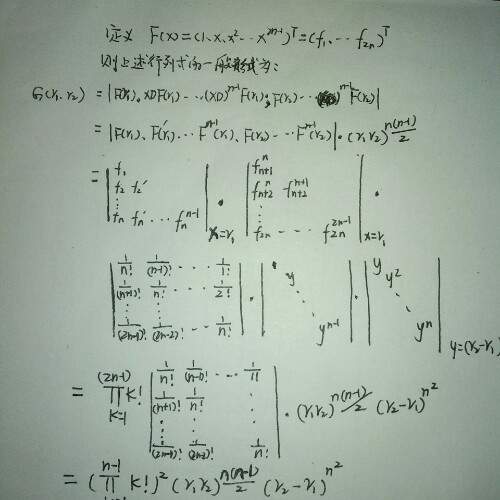 定义 F(x)=(1、x、x²…x²ⁿ⁻¹)ᵀ=(f₁、…f₂ₙ)ᵀ
则上述行列式的一般形式为:
G(r₁、r₂) = |F(r₁)、XDF(r₁)…(XD)ⁿ⁻¹F(r₁); F(r₂)… F(r₂)|
= |F(r₁)、F'(r₁)…Fⁿ⁻¹(r₁)、F(r₂)…Fⁿ⁻¹(r₂)|·(r₁r₂)^(n(n-1)/2)
= |f₁ ; f₂ f₂' ; ⋮ ; fₙ fₙ' … fₙⁿ⁻¹|ₓ₌ᵣ₁ · |fⁿₙ₊₁ ; fⁿₙ₊₂ fⁿ⁺¹ₙ₊₂ ; ⋮ ; f₂ₙ … f₂ₙ²ⁿ⁻¹|ₓ₌ᵣ₁ ·
|1/n! 1/(n-1)! … 1/1! ; 1/(n+1)! 1/n! … 1/2! ; ⋮ ; 1/(2n-1)! 1/(2n-2)! … 1/n!| · |· y ⋱ yⁿ⁻¹| · |y y² ⋱ yⁿ| y=(r₂-r₁)
= ∏(k=1)^(2n-1) k! |1/n! 1/(n-1)! … 1/1! ; 1/(n+1)! 1/n! ⋮ ; ⋮ ; 1/(2n-1)! 1/(2n-2)! 1/n!| · (r₁r₂)^(n(n-1)/2) (r₂-r₁)^(n²)
= (∏^(n-1) k!)² (r₁r₂)^(n(n-1)/2) (r₂-r₁)^(n²)